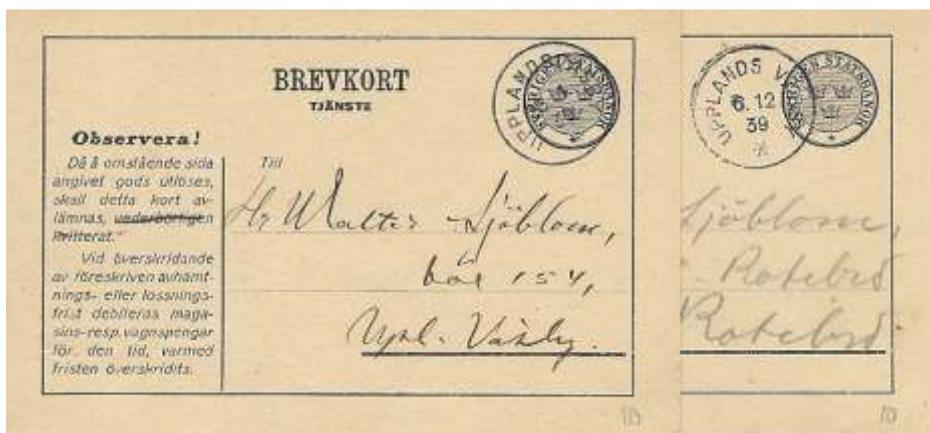 BREVKORT
TJÄNSTE
UPPLANDS
Observera!
Då å omstående sida
angivet gods utlöses,
skall detta kort av-
lämnas, vederbörligen
kvitterat."
Vid överskridande
av föreskriven avhämt-
nings- eller lossnings-
frist debiteras maga-
sins- resp. vagnspengar
för den tid, varmed
fristen överskridits.
Till
Hr Walter Sjöblom,
box 154,
Upl. Väsby.
10
UPPLANDS V
6.12
39
SVERIGES STATSBANOR
Sjöblom,
Rotebro
Rotebro
10